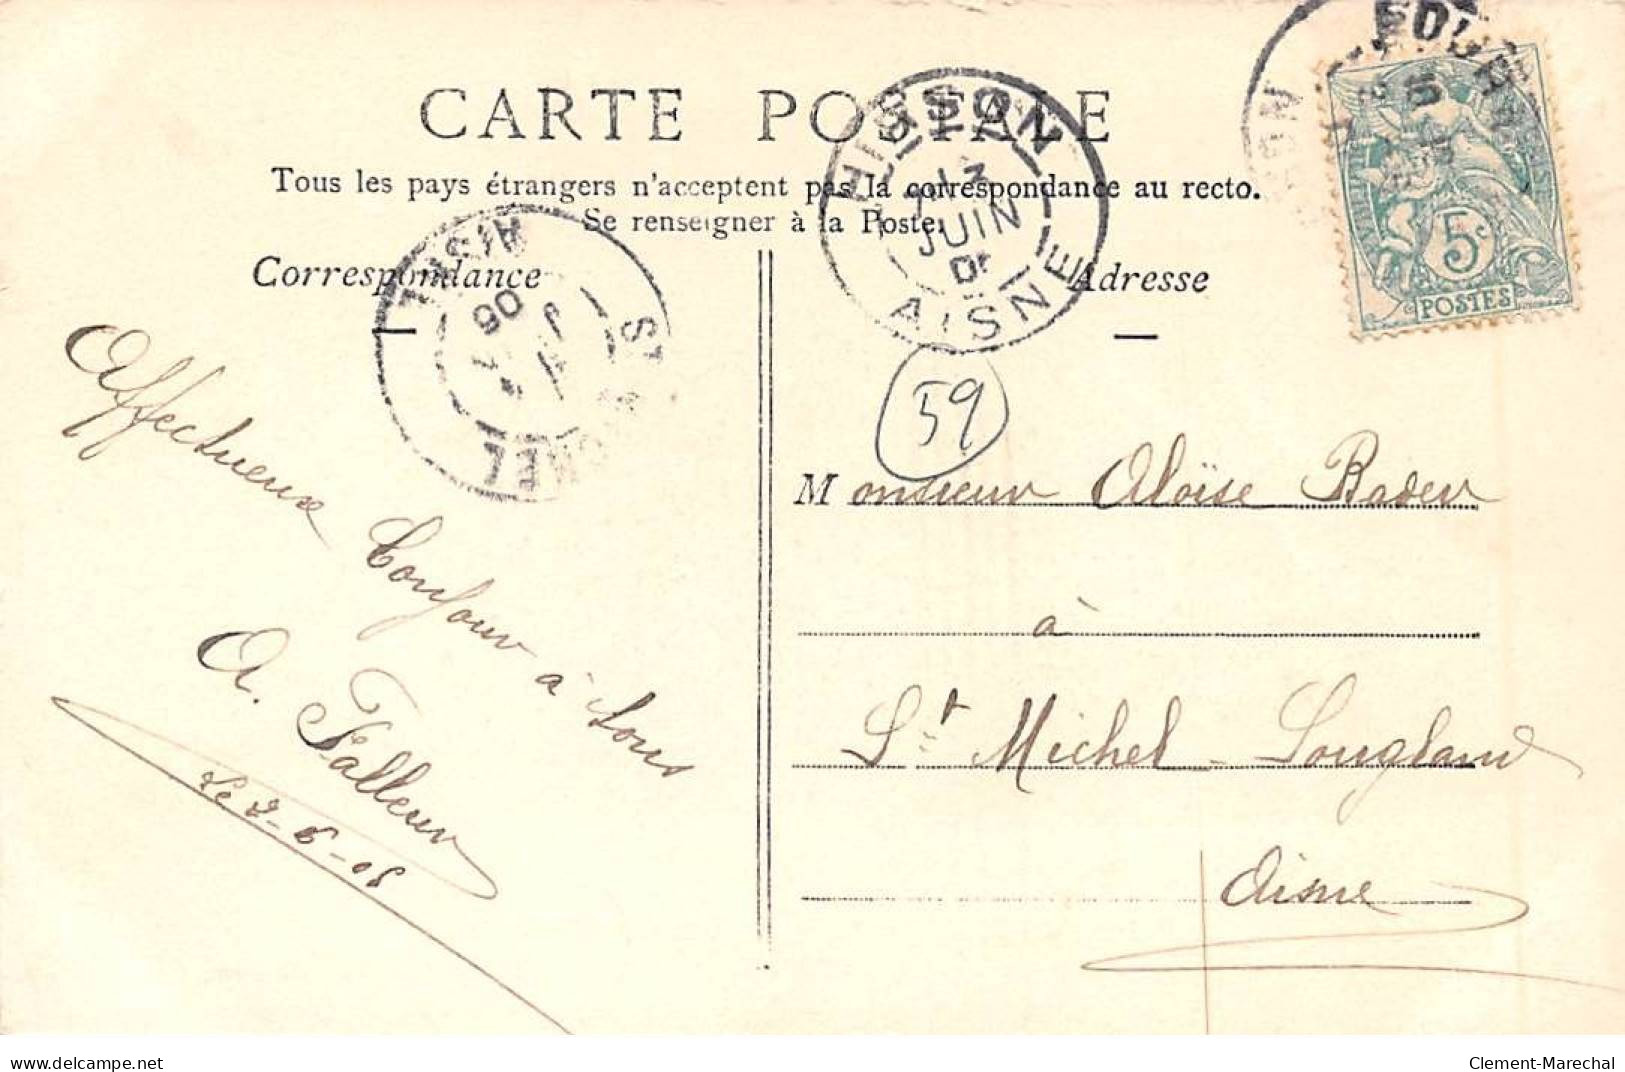 CARTE POSTALE
Tous les pays étrangers n'acceptent pas la correspondance au recto.
Se renseigner à la Poste.
Correspondance
Adresse
HIRSON
13
JUIN
AISNE
AISNE
06
ST MICHEL
5c
POSTES
59
Affectueux Bonjour à tous
A. Falleur
Monsieur Aloïse Bader
à
St Michel - Sougland
Aisne
www.delcampe.net
Clement-Marechal